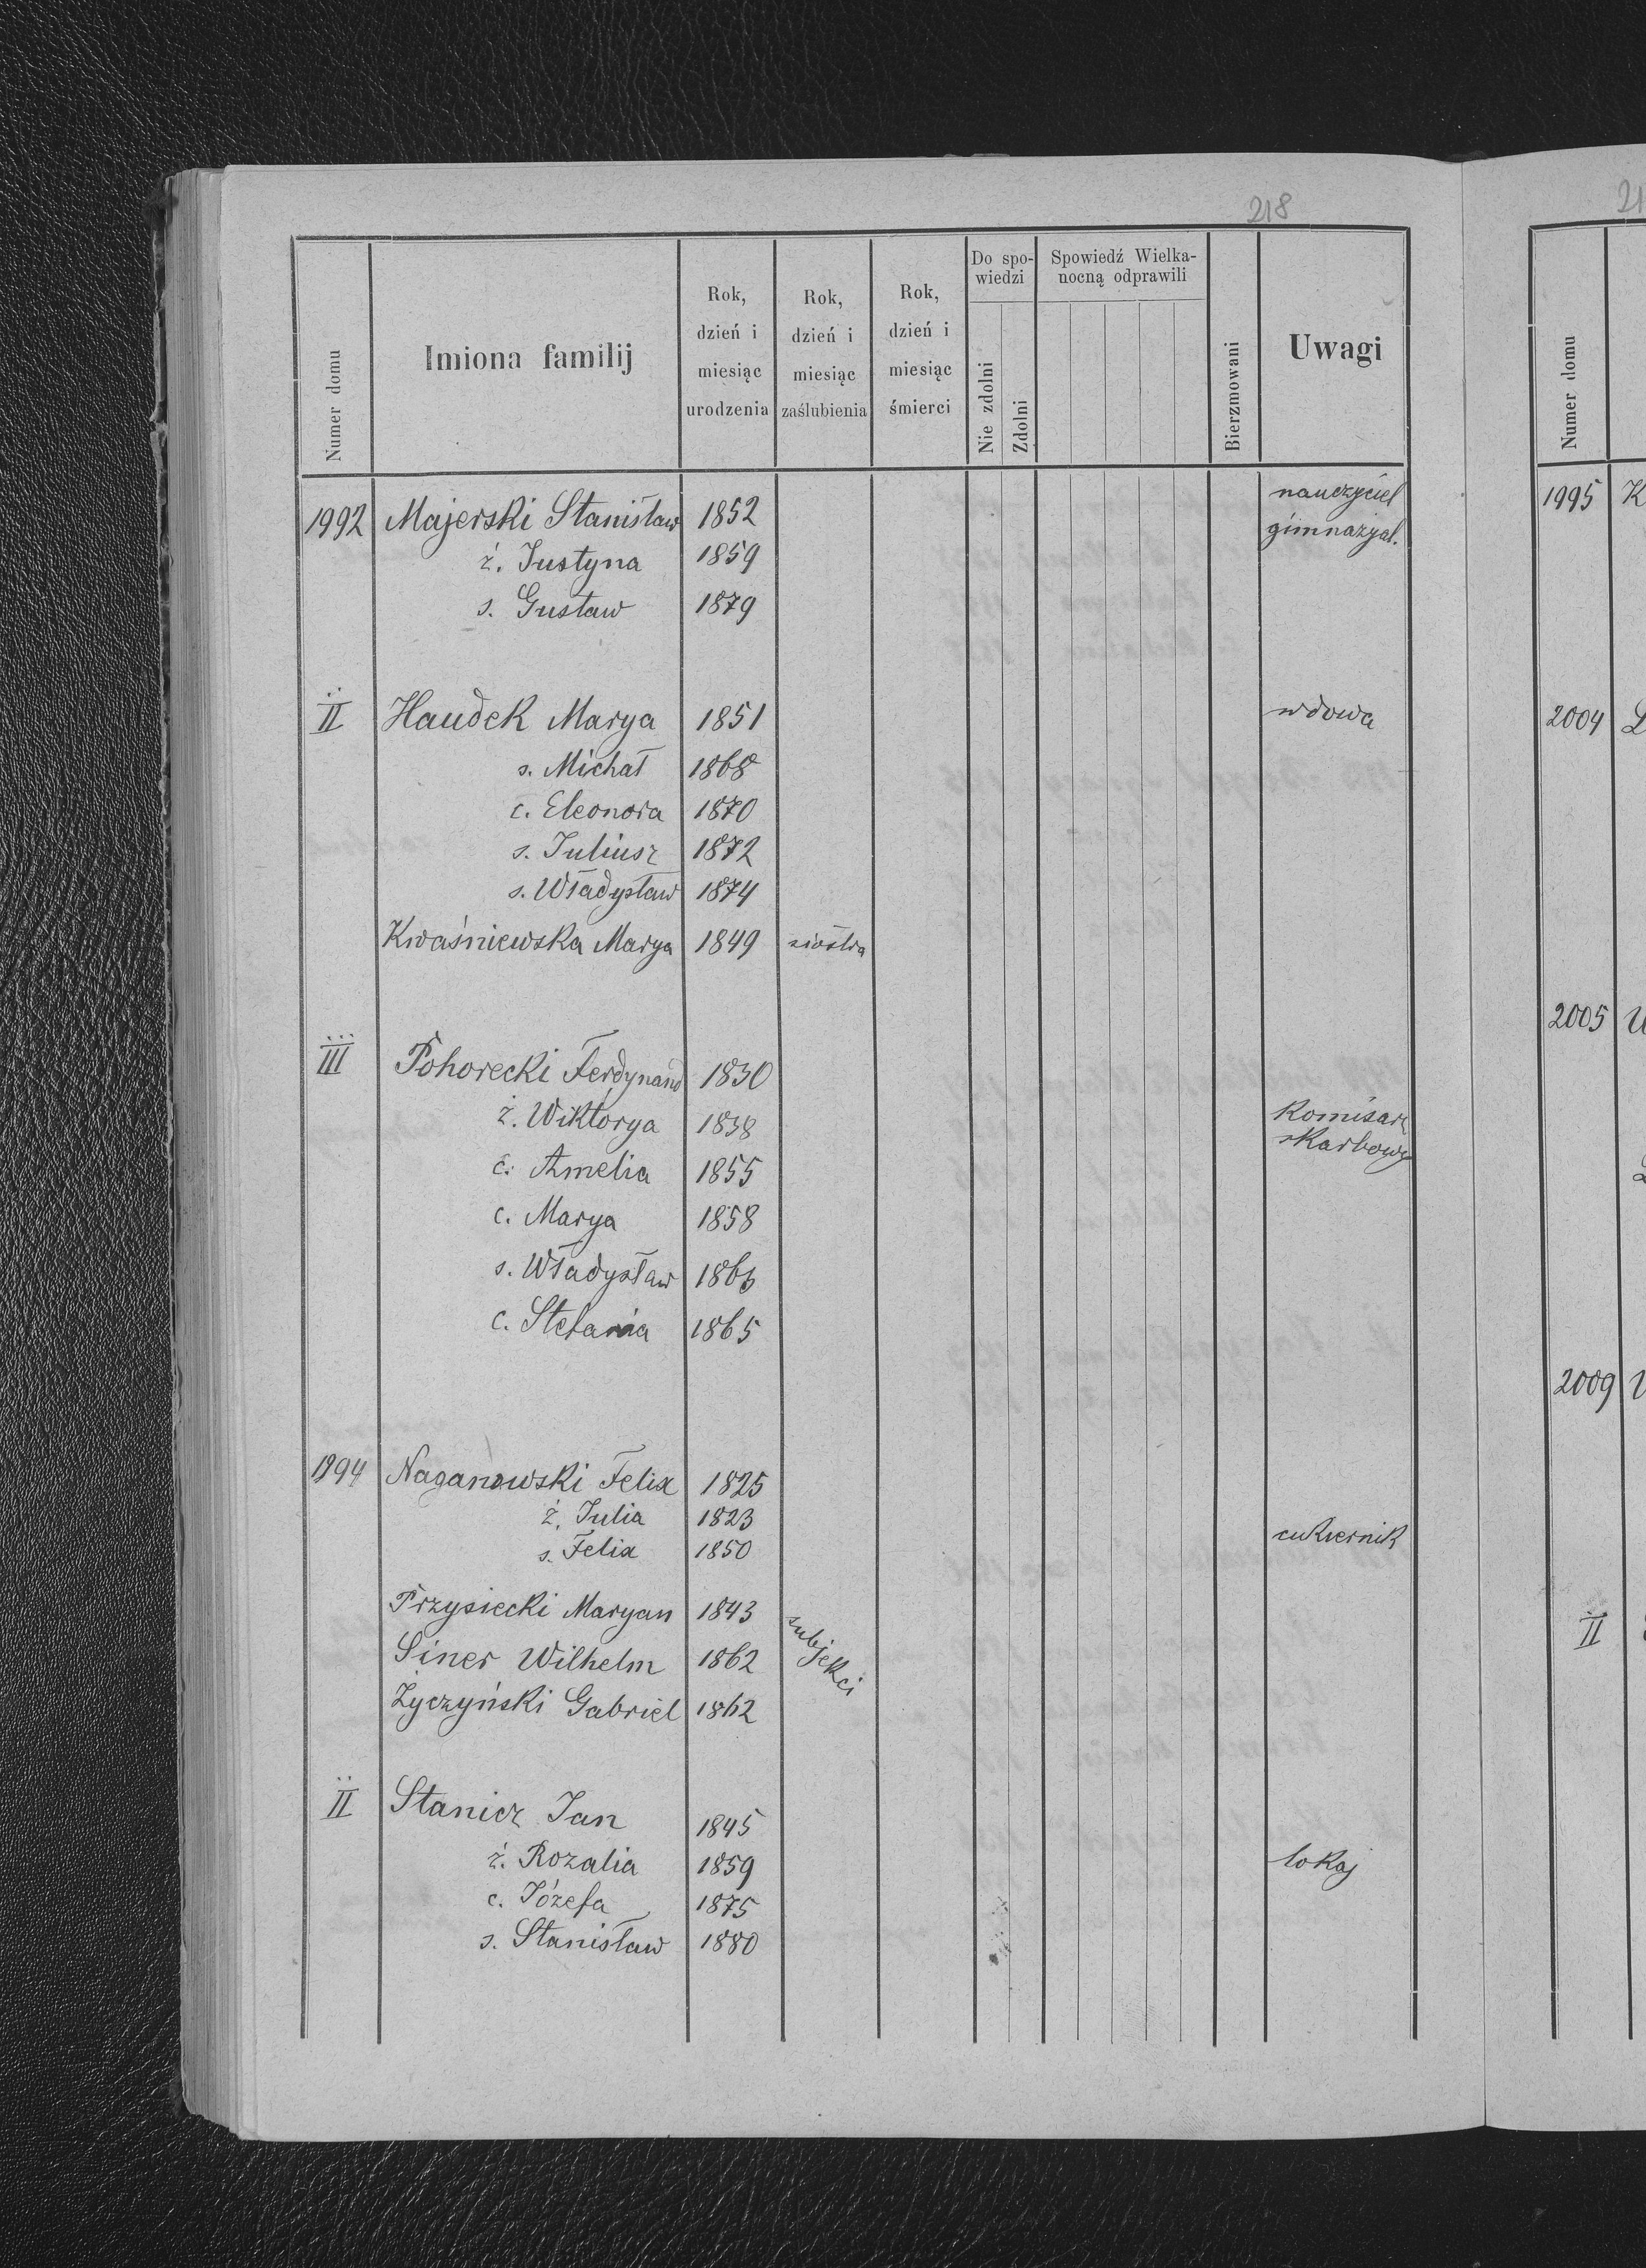 218
Numer domu
Imiona familij
Rok, dzień i miesiąc urodzenia
Rok, dzień i miesiąc zaślubienia
Rok, dzień i miesiąc śmierci
Do spo-
wiedzi
Nie zdolni
Zdolni
Spowiedź Wielka-
nocną odprawili
Bierzmowani
Uwagi
1992 Majerski Stanisław 1852 nauczyciel
gimnazyal.
ż. Justyna 1859
s. Gustaw 1879
II Haudek Marya 1851 wdowa
s. Michał 1868
c. Eleonora 1870
s. Juliusz 1872
s. Władysław 1874
Kwaśniewska Marya 1849 siostra
III Pohorecki Ferdynand 1830
ż. Wiktorya 1838 Komisarz
skarbowy
c. Amelia 1855
c. Marya 1858
s. Władysław
c. Stefania 1865
1994 Naganowski Felix 1825
ż. Julia 1823 cukiernik
s. Felix 1850
Przysiecki Maryan 1843
Siner Wilhelm 1862 subjekci
Życzyński Gabriel 1862
II Stanicz Jan 1845
ż. Rozalia 1859 lokaj
c. Józefa 1875
s. Stanisław 1880
21
Numer domu
1995 K
2004
2005
2009
II